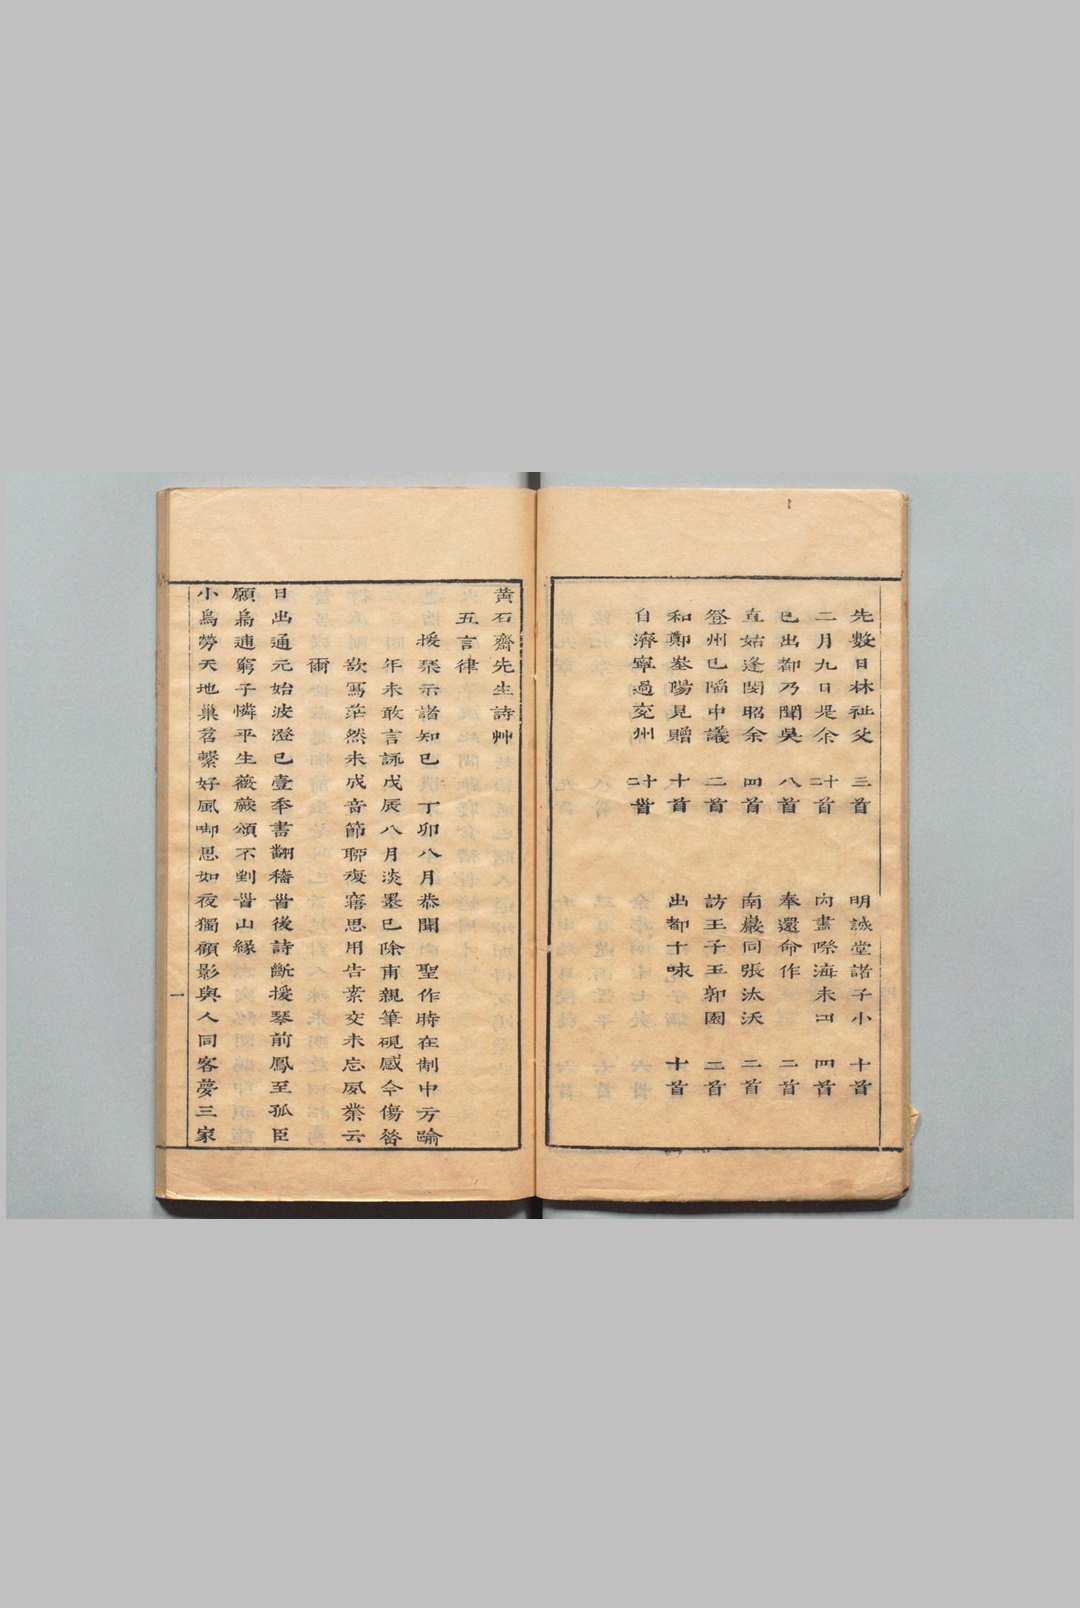 先數日林祉父 三首 明誠堂諸子小 十首
二月九日是余 二十首 內畫際海未口 四首
已出都乃聞吳 八首 奉還命作 二首
直姑逢閔昭余 四首 南巖同張汰沃 二首
登州已陷中議 二首 訪王子玉郭園 二首
和鄭峚陽見贈 十首 出都十咏 十首
自濟寧過兗州 二十首
黃石齋先生詩艸
五言律
援琹示諸知已丁卯八月恭聞聖作時在制中方踰
年未敢言詠戊辰八月淡墨已除甫親筆硯感今傷昝
欲寫茫然未成音節聊復寤思用告素交未忘夙業云
爾
日出通元始波澄已壹奉書翻穡昔後詩斷援琴前鳳至孤臣
願烏逋窮子憐平生薇蕨頌不剉昔山緣
小烏勞天地巢苕繫好風啣思如夜獨顧影與人同客夢三家
一